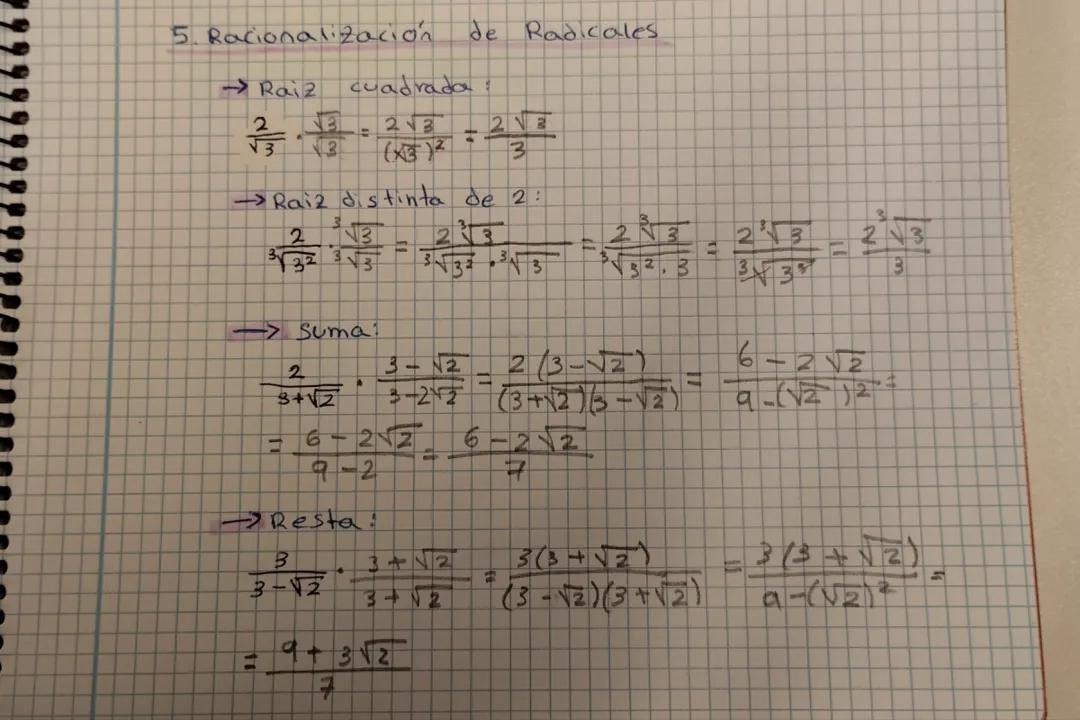 5. Racionalización de Radicales
→ Raiz cuadrada:
2/√3 · √3/√3 = 2√3/(√3)² = 2√3/3
→ Raiz distinta de 2:
2/∛3² · ∛3/∛3 = 2∛3/∛3² · ∛3 = 2∛3/∛3² · 3 = 2∛3/∛3³ = 2∛3/3
→ Suma:
2/3+√2 · 3-√2/3-2√2 = 2(3-√2)/(3+√2)(3-√2) = 6-2√2/9-(√2)² =
= 6-2√2/9-2 = 6-2√2/7
→ Resta:
3/3-√2 · 3+√2/3+√2 = 3(3+√2)/(3-√2)(3+√2) = 3(3+√2)/9-(√2)² =
= 9+3√2/7